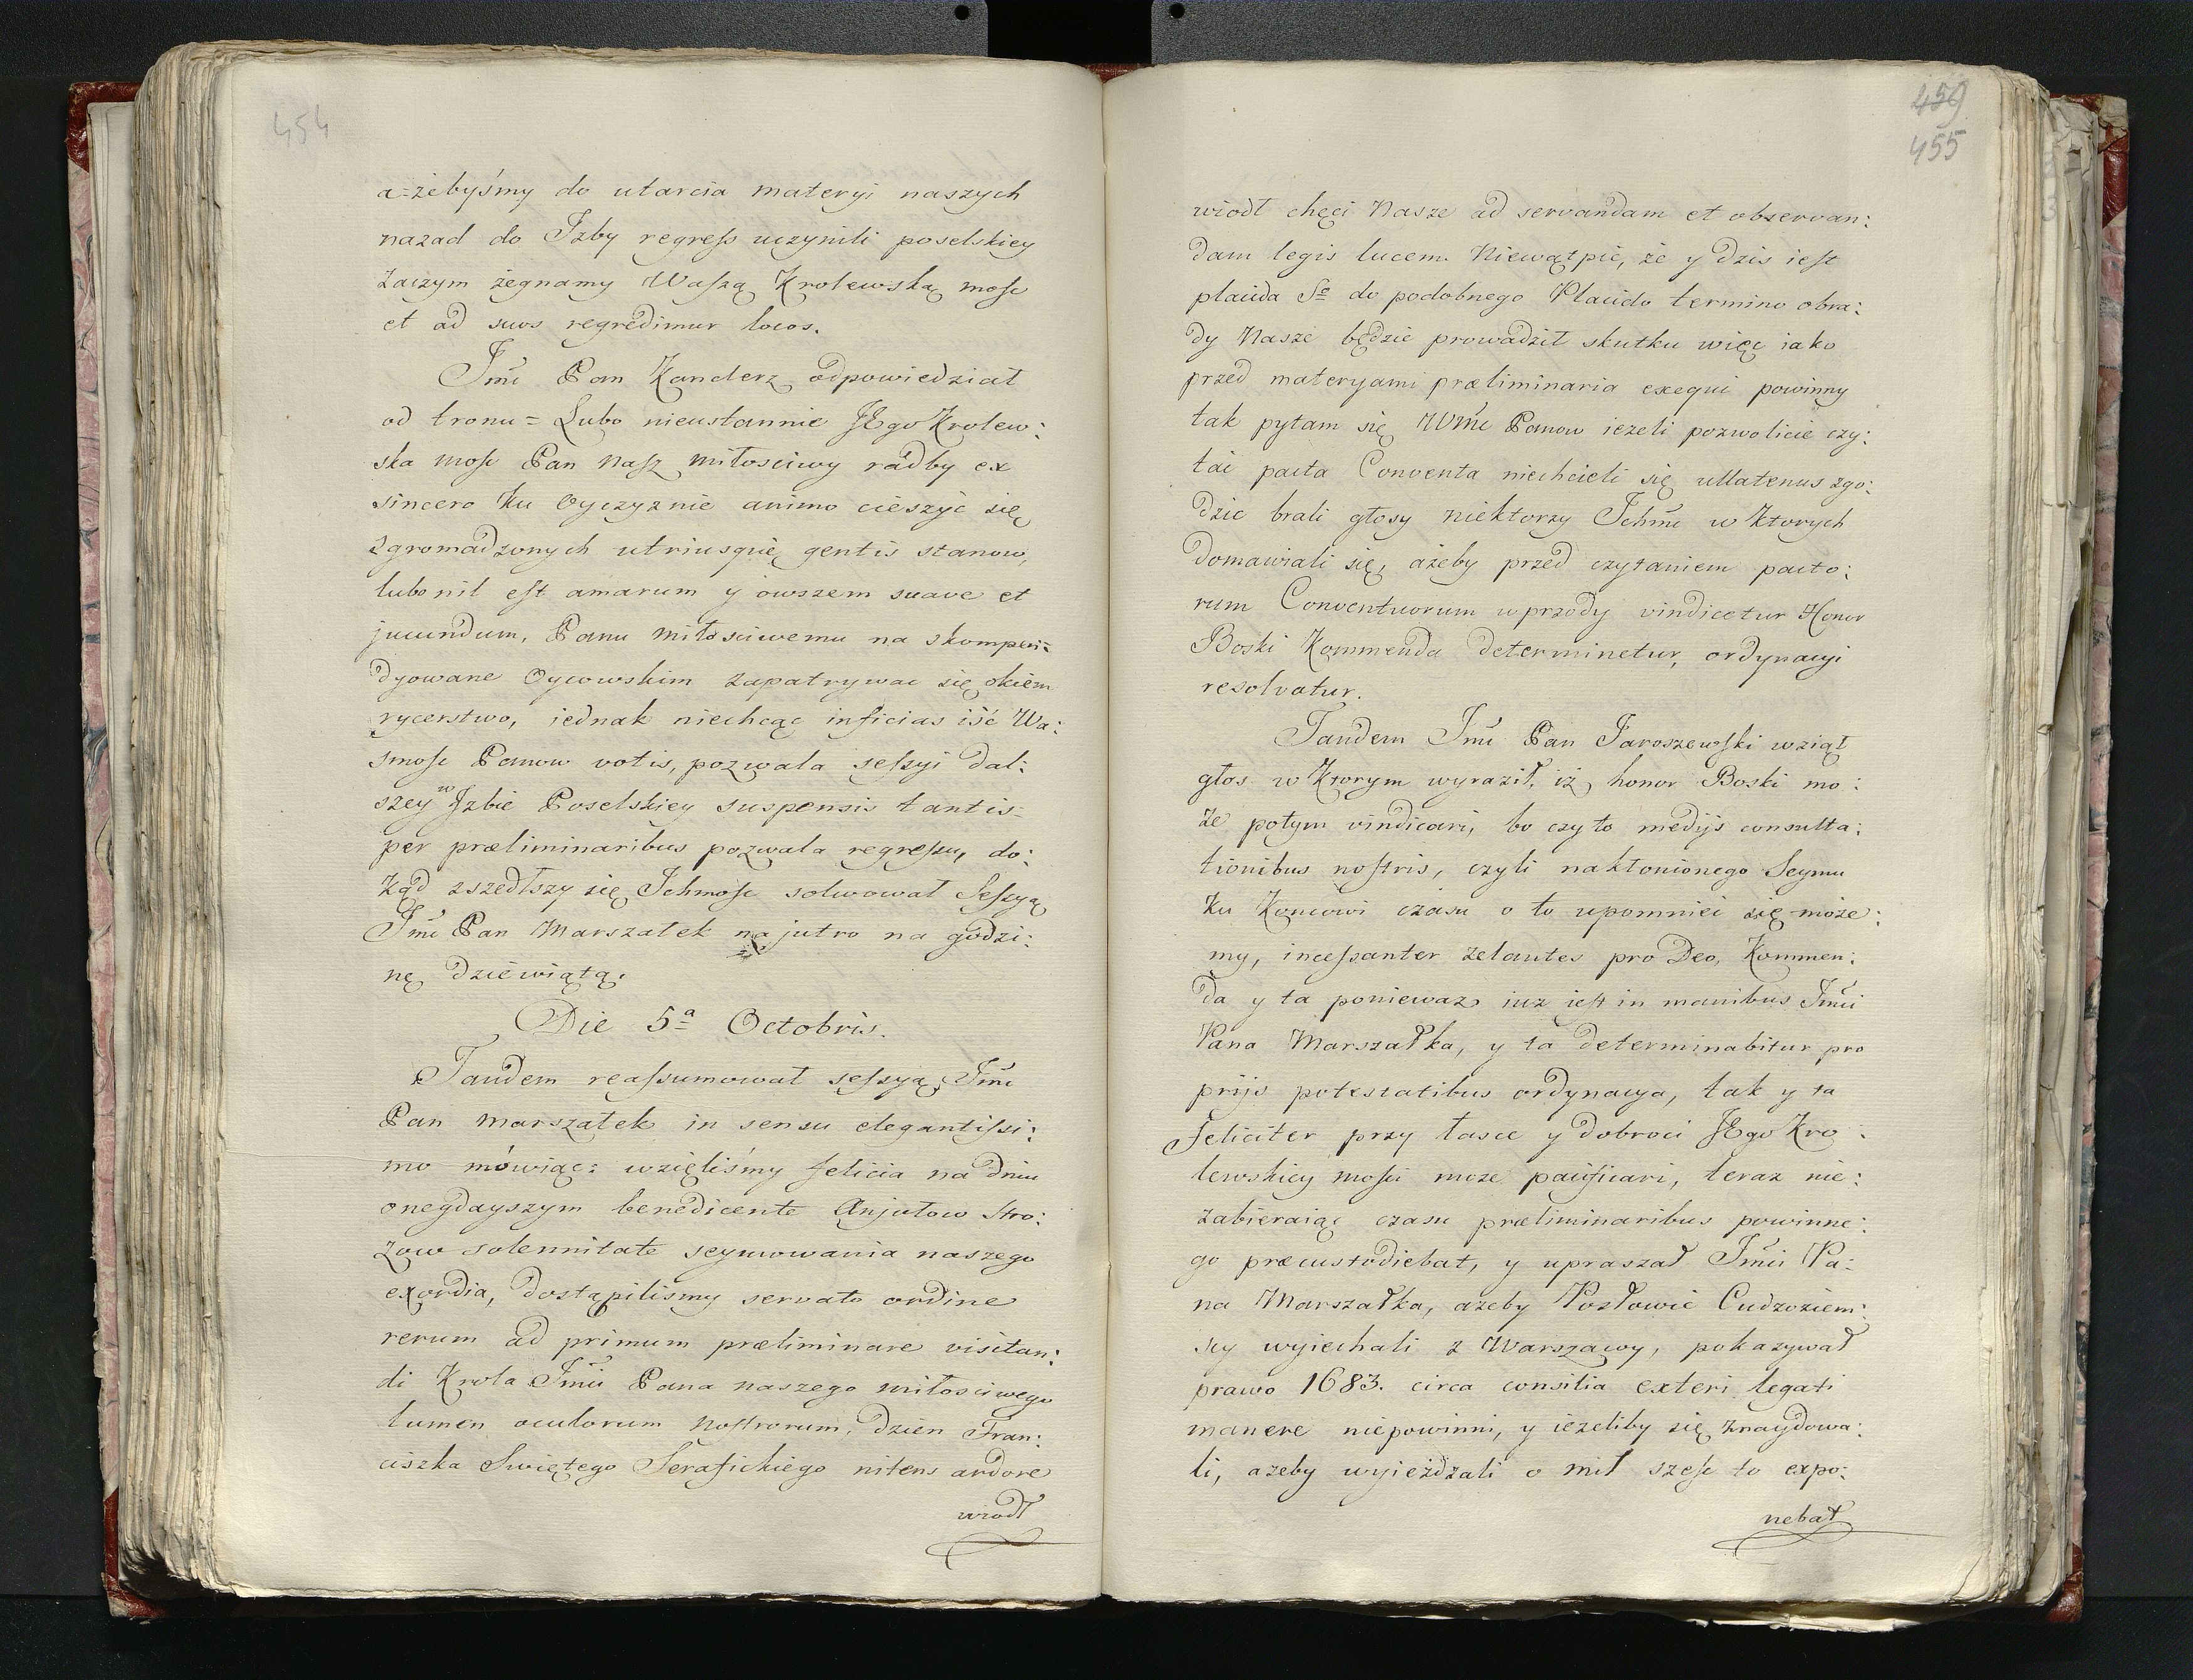 454
a=żebyśmy do utarcia materyi naszych
nazad do Izby regress uczynili poselskiey
zaczym żegnamy Waszą Krolewską mosc
et ad suos regredimur locos.
Jmć Pan Kanclerz odpowiedział
od tronu = Lubo nieustannie JEgo Krolew:
ska mosc Pan Nasz miłosciwy rad by ex
sincero ku Oyczyznie animo cieszyć się
zgromadzonych utriusque gentis stanow,
lubo nil est amarum y owszem suave et
jucundum, Panu miłosciwemu na skompen:
dyowane Oycowskim zapatrywac się okiem
rycerstwo, iednak niechcąc inficias iść Wa:
smosc Panow votis, pozwala sessyi dal:
szey w Izbie Poselskiey suspensis tantis-
per præliminaribus pozwala regressu, do:
kąd zszedłszy się Ichmosc solwował Sessyą
Jmć Pan Marszałek na jutro na godzi:
nę dziewiątą.
Die 5ª Octobris.
Tandem reassumował sessyą Jmć
Pan Marszałek in sensu elegantissi:
mo mówiąc: wzięliśmy felicia na dniu
onegdayszym benedicente Anjołow Stro:
zow solennitate seymowania naszego
exordia, dostąpiliśmy servato ordine
rerum ad primum præliminare visitan:
di Krola Jmći Pana naszego miłosciwego
lumen oculorum nostrorum, dzien Fran:
ciszka Swiętego Serafickiego nitens ardore
wiodł
459
455
wiodł chęci Nasze ad servandam et observan:
dam legis lucem. Niewątpię, że y dzis iest
placida Sᵉ do podobnego Placido termino obra:
dy Nasze będzie prowadził skutku więc iako
przed materyami præliminaria exequi powinny
tak pytam się WMć Panow ieżeli pozwolicie czy:
tać pacta Conventa niechcieli się ullatenus zgo:
dzic brali głosy niektorzy Ichmć w Ktorych
domawiali się, ażeby przed czytaniem pacto:
rum Conventuorum wprzody vindicetur Honor
Boski Kommenda determinetur, ordynacyi
resolvatur.
Tandem Jmć Pan Jaroszewski wziął
głos w Ktorym wyraził, iż honor Boski mo:
że potym vindicari, bo czy to medijs consulta:
tionibus nostris, czyli nakłonionego Seymu
ku Koncowi czasu o to upomnieć się może:
my, incessanter zelantes pro Deo, Kommen:
da y ta ponieważ iuz iest in manibus Jmći
Pana Marszałka, y ta determinabitur pro
prijs potestatibus ordynacya, tak y ta
feliciter przy łasce y dobroci JEgo Kro:
lewskiey mosci moze pacificari, teraz nie:
zabieraiąc czasu præliminaribus powinne:
go præcustodiebat, y upraszał Jmći Pa:
na Marszałka, azeby Posłowie Cudzoziem:
scy wyiechali z Warszawy, pokazywał
prawo 1683. circa consilia exteri legati
manere niepowinni, y ieżeliby się znaydowa:
li, azeby wyieżdzali o mil szesc to expo:
nebat